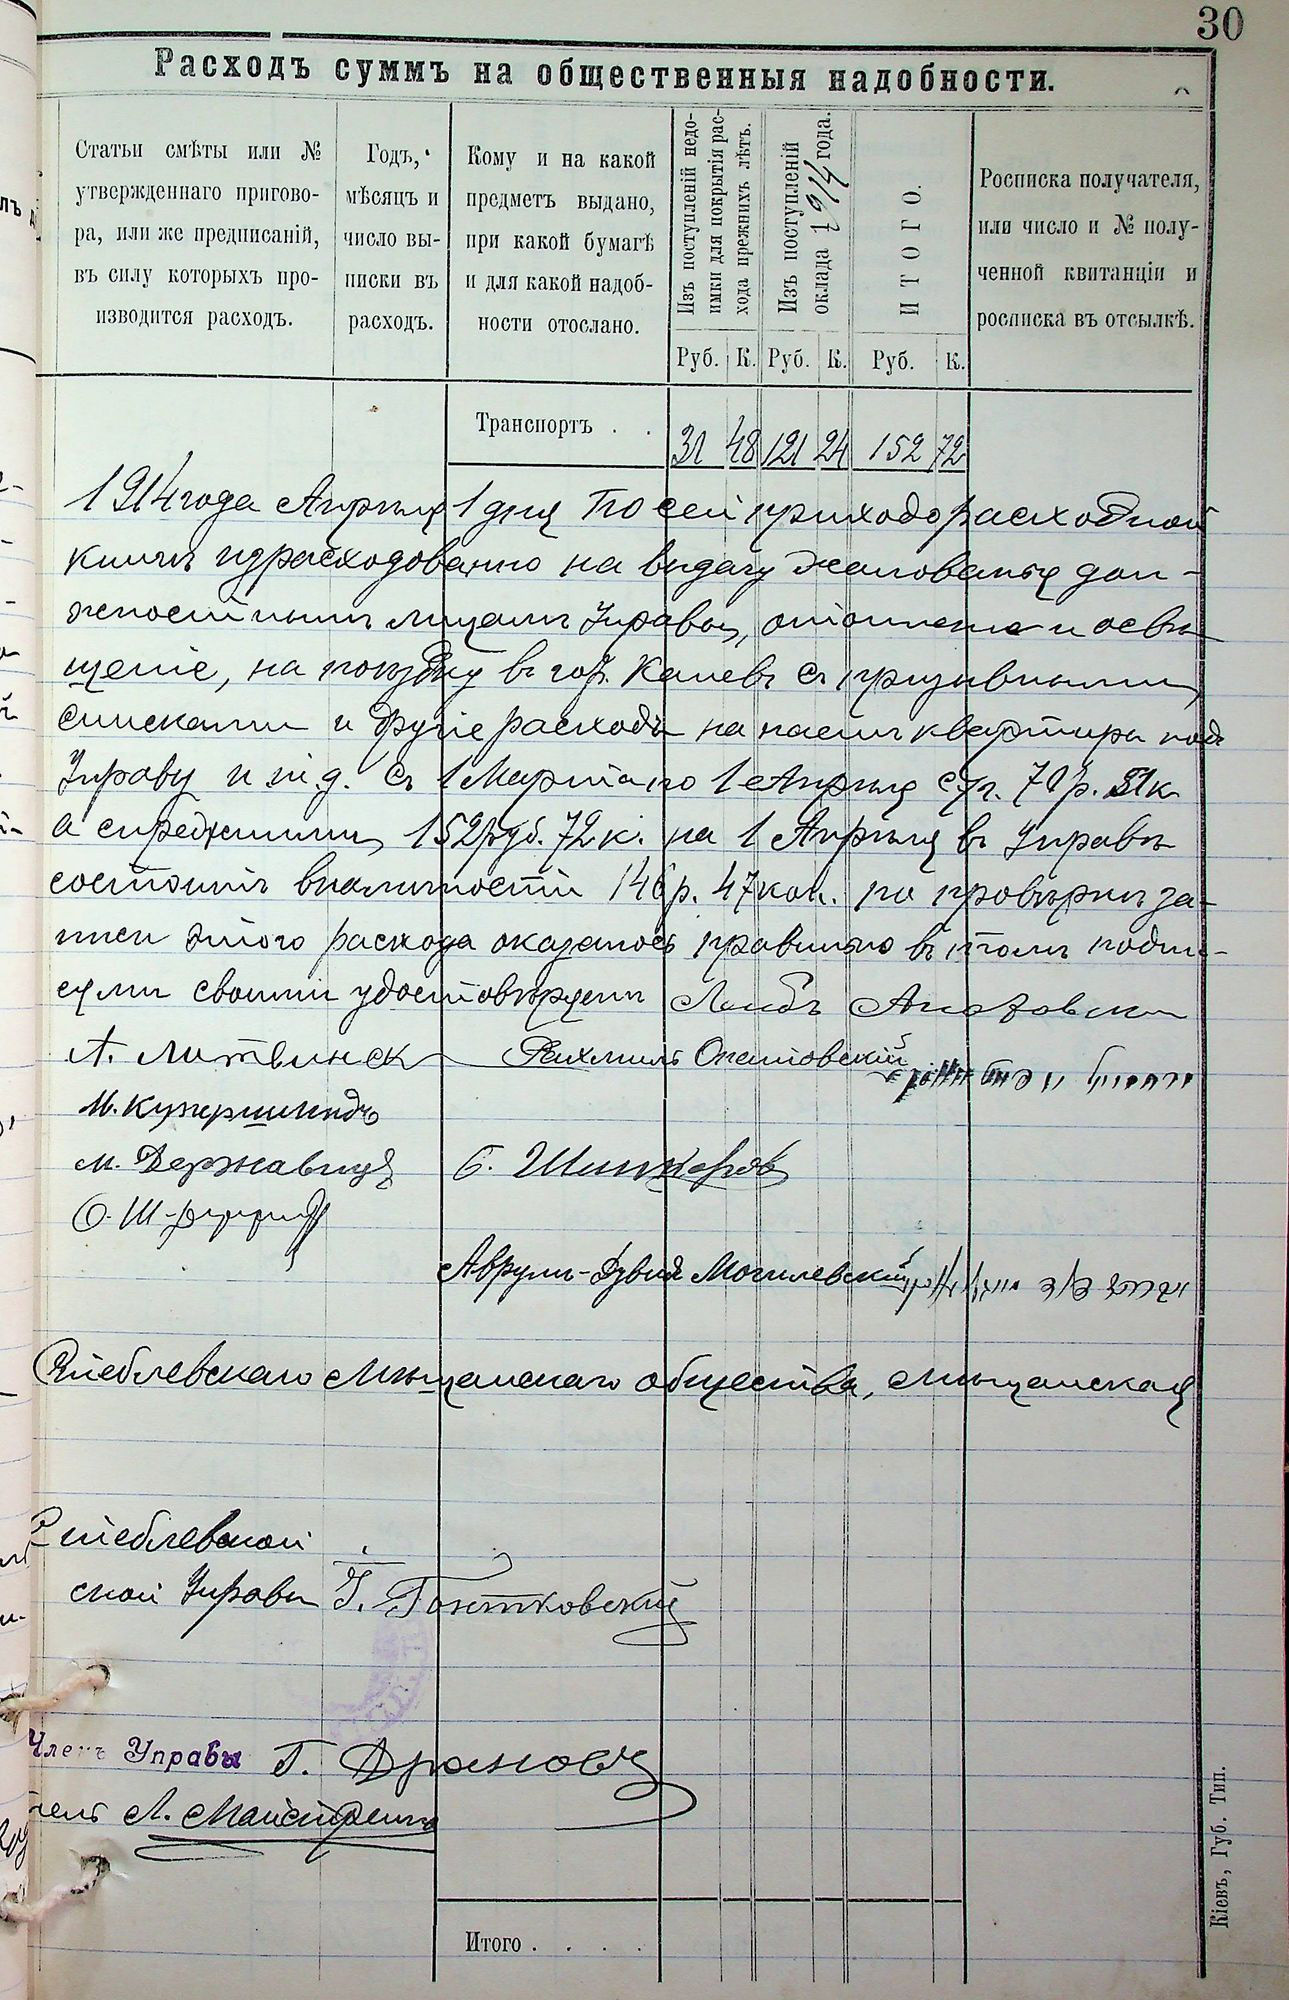 30
Расходъ суммъ на общественныя надобности.
Статьи смѣты или №
утвержденнаго пригово-
ра, или же предписаній,
въ силу которыхъ про-
изводится расходъ.
Годъ,
мѣсяцъ и
число вы-
писки въ
расходъ.
Кому и на какой
предметъ выдано,
при какой бумагѣ
и для какой надоб-
ности отослано.
Изъ поступленій недо-
имки для покрытія рас-
хода прежнихъ лѣтъ.
Изъ поступленій
оклада 1914 года.
ИТОГО.
Росписка получателя,
или число и № полу-
ченной квитанціи и
росписка въ отсылкѣ.
Руб. К. Руб. К. Руб. К.
Транспортъ . . 31 48 121 24 152 72
1914 года Апрѣля 1 дня По сей приходорасходной
книгѣ израсходованно на выдачу жалованья дол-
жностнымъ лицамъ Управы, отопленіе и освѣ
щеніе, на поѣздку въ гор. Каневъ съ призывными
списками и другіе расходы на наемъ квартиры подъ
Управу и т.д. съ 1 Марта по 1 Апрѣля с/г. 71 р. 51 к
а съ прежними 152 руб. 72 к. на 1 Апрѣля въ Управѣ
состоитъ въ наличности 146 р. 47 коп. по провѣркѣ за-
писи этого расхода оказалось правильно въ томъ подпи-
сями своими удостовѣряемъ Лейбъ
А. Литвинск Рахмиль Опатовскій
М. Купершмидъ
М. Державецъ Б. Шинкаровъ
О. Ш
Аврумъ-Дувидъ Могилевскій
Стеблевскаго Мѣщанскаго общества, Мѣщанская
Стеблевской
ской Управы Г. Понтковскій
Членъ Управы Г. Драновъ
Л. Майстренко
Итого . . . .
Кіевъ, Губ. Тип.